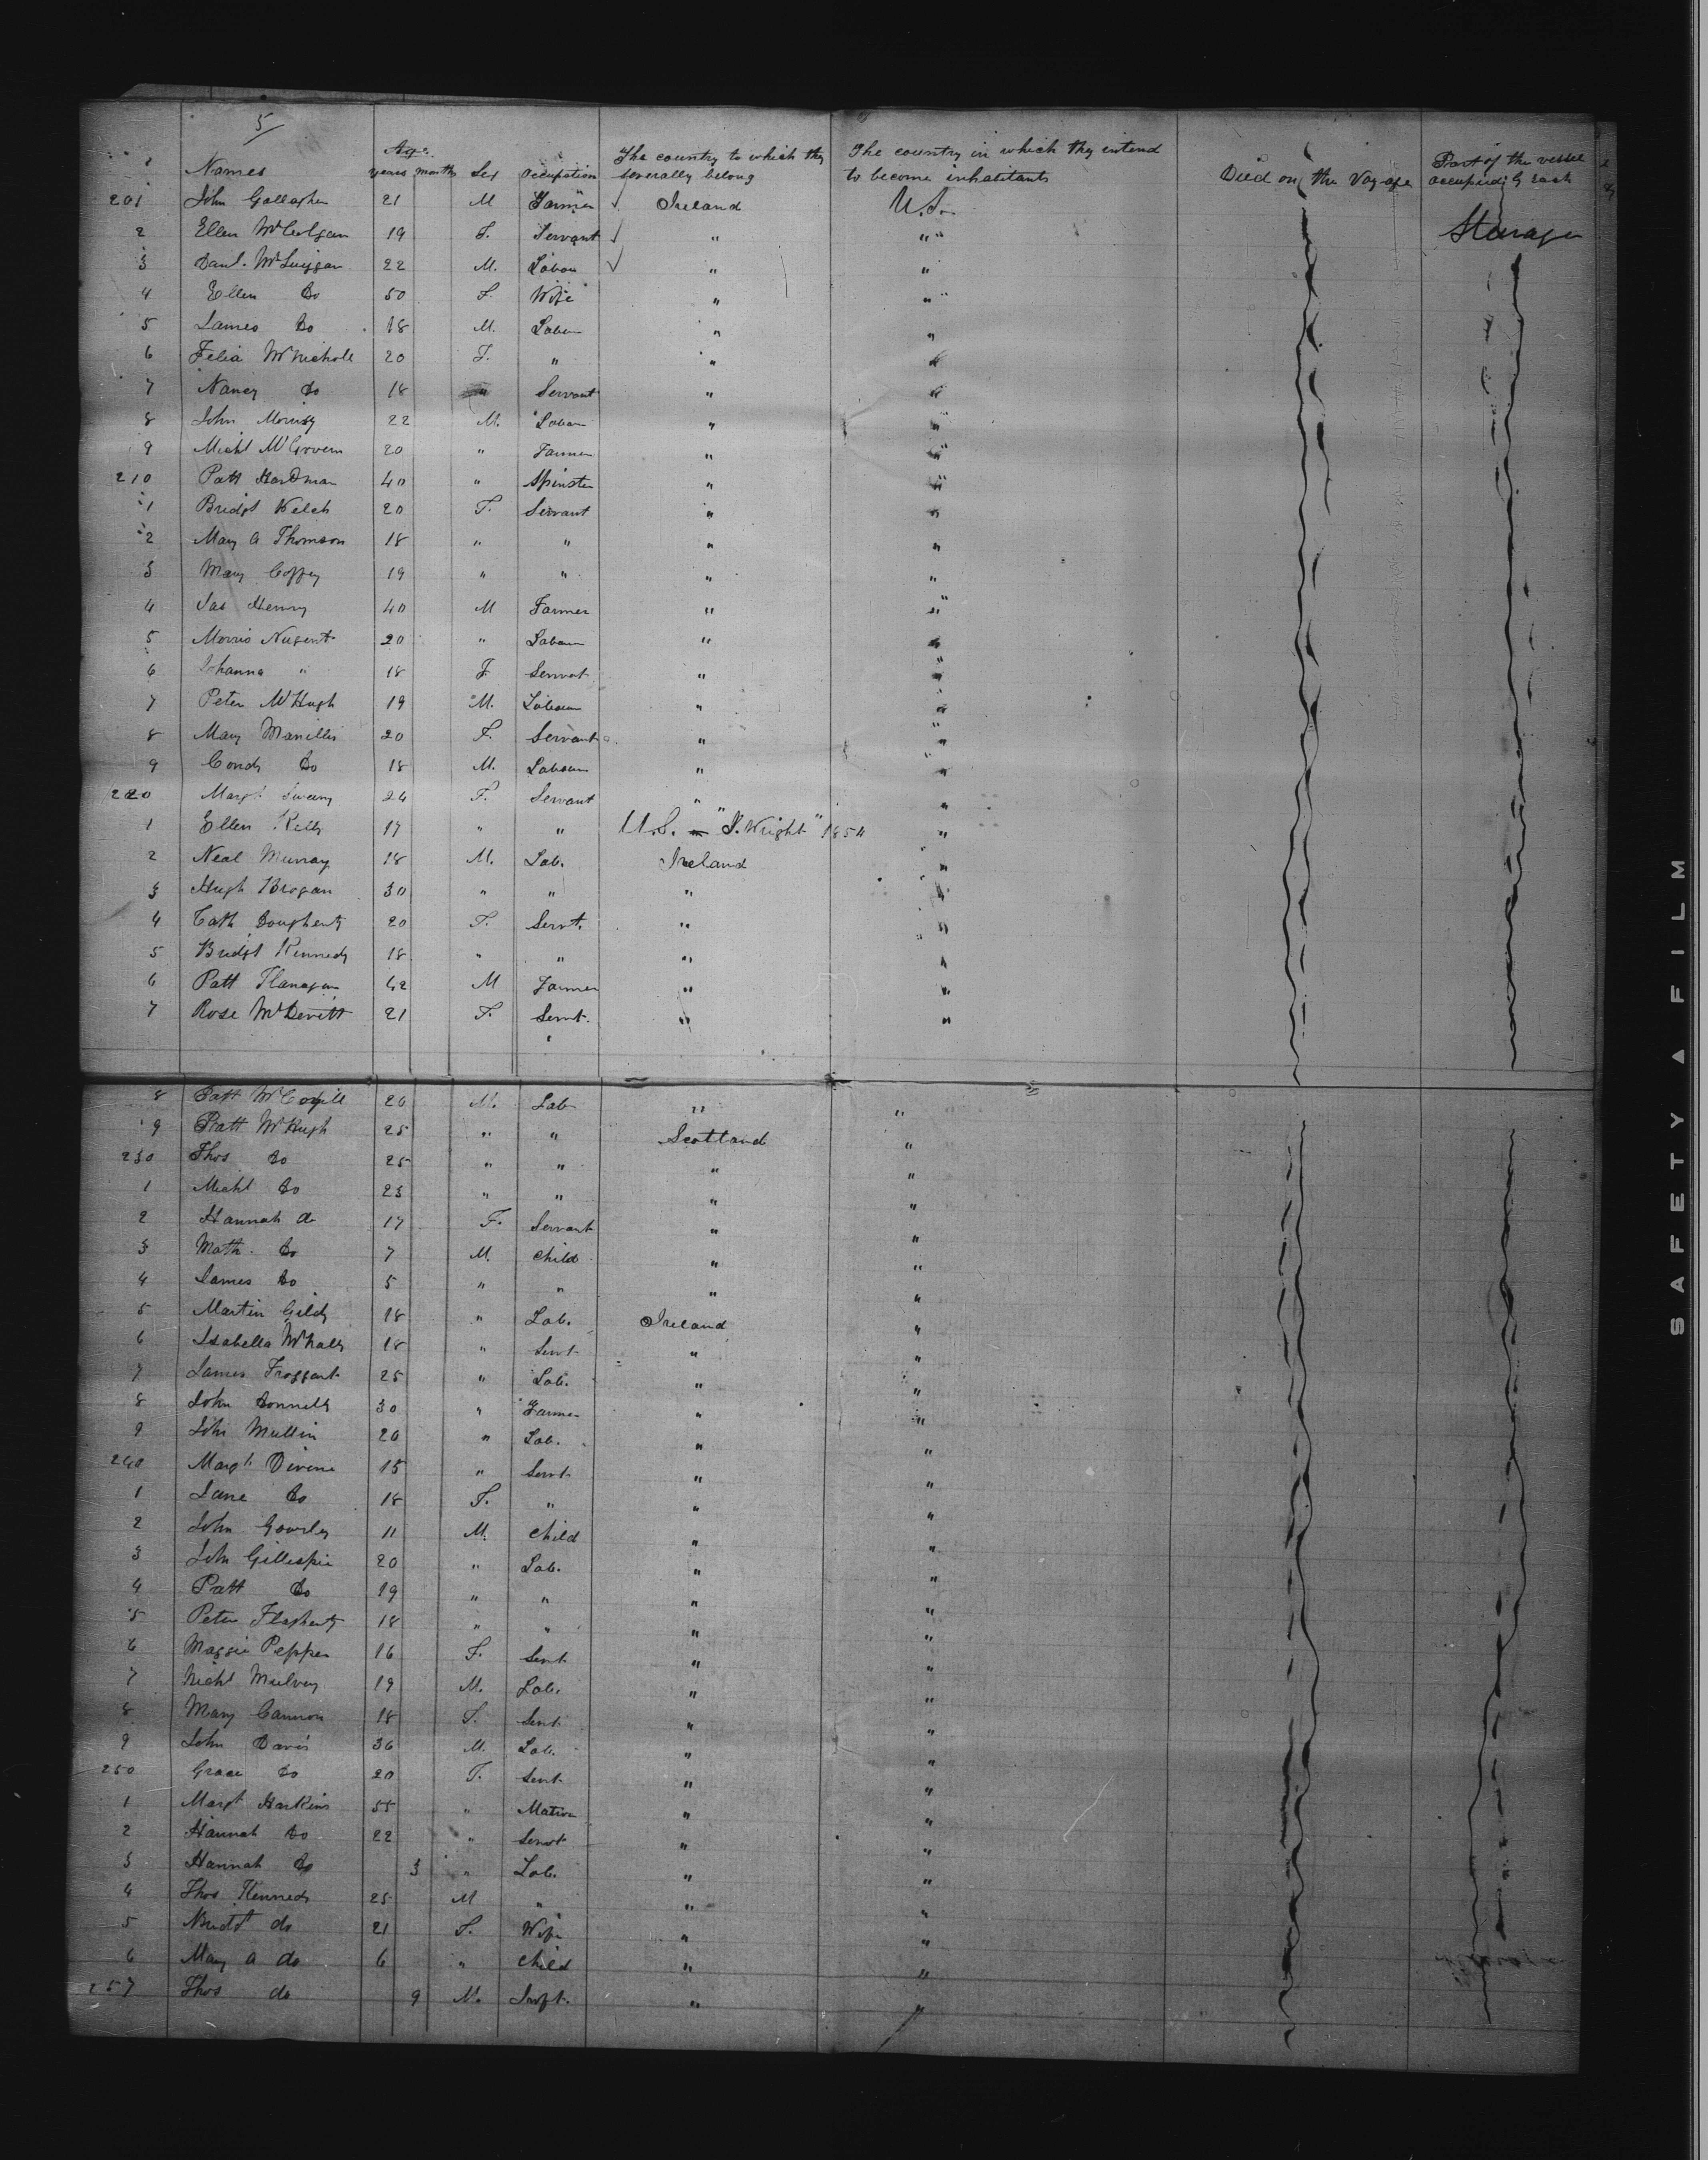 5
Names Age years months Sex Occupation The country to which they severally belong The country in which they intend to become inhabitants Died on the Voyage Part of the vessel occupied by each
201 John Gallagher 21 M Farmer Ireland U.S.
2 Ellen McColgan 19 F. Servant " " " Steerage
3 Danl. 22 M. Labou " "
4 Ellen Do 50 F. Wife " "
5 James Do 18 M. Labou " "
6 Felia McNichole 20 F. " " "
7 Nancy Do 18 " Servant " "
8 John Morrisy 22 M. Labou " "
9 Michl McGovern 20 " Farmer " "
210 Patt Hardman 40 " Spinster " "
1 Bridgt Welch 20 F. Servant " "
2 Mary A Thomson 18 " " " "
3 Mary Coffey 19 " " " "
4 Jas Henry 40 M Farmer " "
5 Morris Nugent 20 " Labour " "
6 Johanna " 18 F Servant " "
7 Peter McHugh 19 M. Labour " "
8 Mary 20 F. Servant " "
9 Condy Do 18 M. Labour " "
220 Margt. Sweeny 24 F. Servant " "
1 Ellen Kelly 17 " " U.S. - "S. Wright" 1854 "
2 Neal Murray 18 M. Lab. Ireland "
3 Hugh Brogan 30 " " " "
4 Cath Dougherty 20 F. Servt. " "
5 Bridgt Kennedy 18 " " " "
6 Patt Flanagan 42 M Farmer " "
7 Rose McDevitt 21 F. Servt. " "
8 Patt 26 M. Lab " "
9 Patt McHugh 25 " " Scotland "
230 Thos Do 25 " " " "
1 Michl Do 23 " " " "
2 Hannah do 17 F. Servant " "
3 Math. Do 7 M. Child " "
4 James Do 5 " " " "
5 Martin Gildy 18 " Lab. Ireland "
6 Isabella McNally 18 " Servt " "
7 James 25 " Lab. " "
8 John Donnelly 30 " Farmer " "
9 John Mullin 20 " Lab. " "
240 Margt. Divine 15 " Servt " "
1 Jane Do 18 F. " " "
2 John Gourley 11 M. Child " "
3 John Gillespie 20 " Lab. " "
4 Patt Do 19 " " " "
5 Peter Flagherty 18 " " " "
6 Maggie Pepper 16 F. Servt " "
7 Michl Mulvey 19 M. Lab. " "
8 Mary Cannon 18 F. Servt " "
9 John Davis 36 M. Lab. " "
250 Grace Do 20 F. Servt " "
1 Margt Harkins 55 " Matron " "
2 Hannah Do 22 " Servt " "
3 Hannah Do 3 " Lab. " "
4 Thos Kennedy 25 M " " "
5 Bridgt do 21 F. Wife " "
6 Mary A do 6 " Child " "
257 Thos do 9 M. Inft. " "
SAFETY A FILM